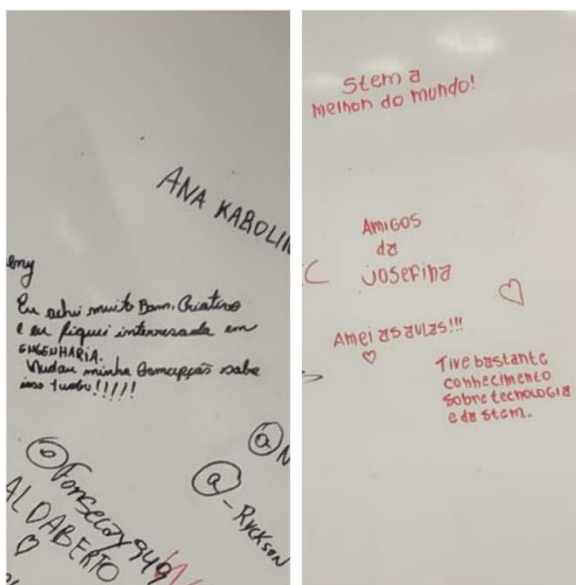 ANA KABOLIN
eny
Eu achi muito Bom, Criativo
e eu fiquei interresada em
ENGENHARIA.
Mudou minha Comcepção sobe
isso tudo!!!!!
@Fonsecay949
ALDABERTO
@N
@-RYCKSON
Stem a
melhor do mundo!
AMIGOS
da
Josefina
C
Amei as aulas!!!
Tive bastante
conhecimento
sobre tecnologia
e da stem.